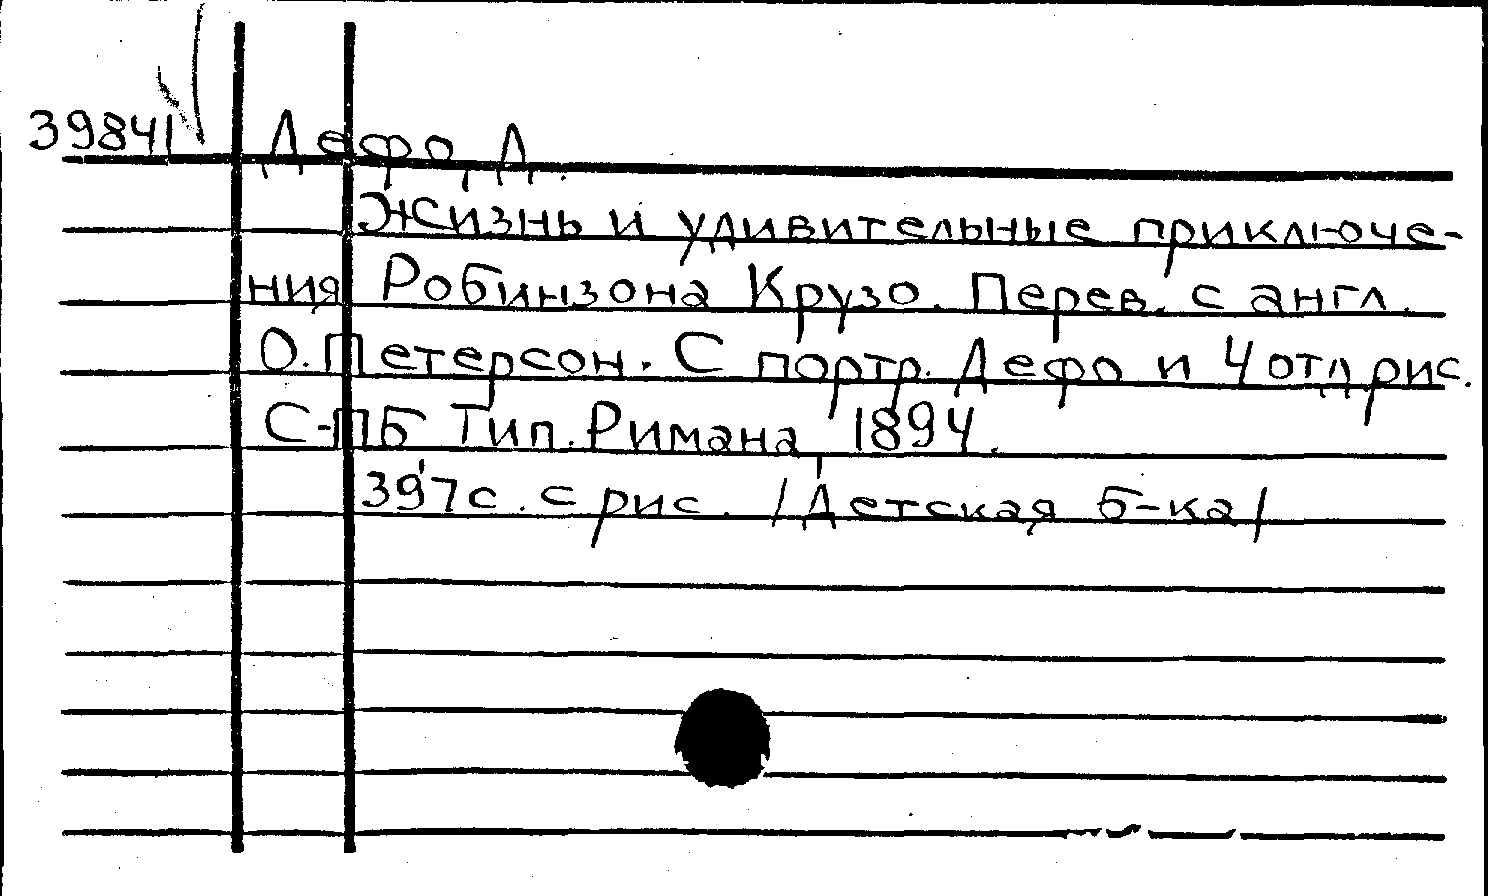 39841 Дефо, Д.
Жизнь и удивительные приключе-
ния Робинзона Крузо. Перев. с англ.
О. Петерсон. С портр. Дефо и 4 отд рис.
С-ПБ Тип. Римана, 1894.
397с. с рис. /Детская б-ка/